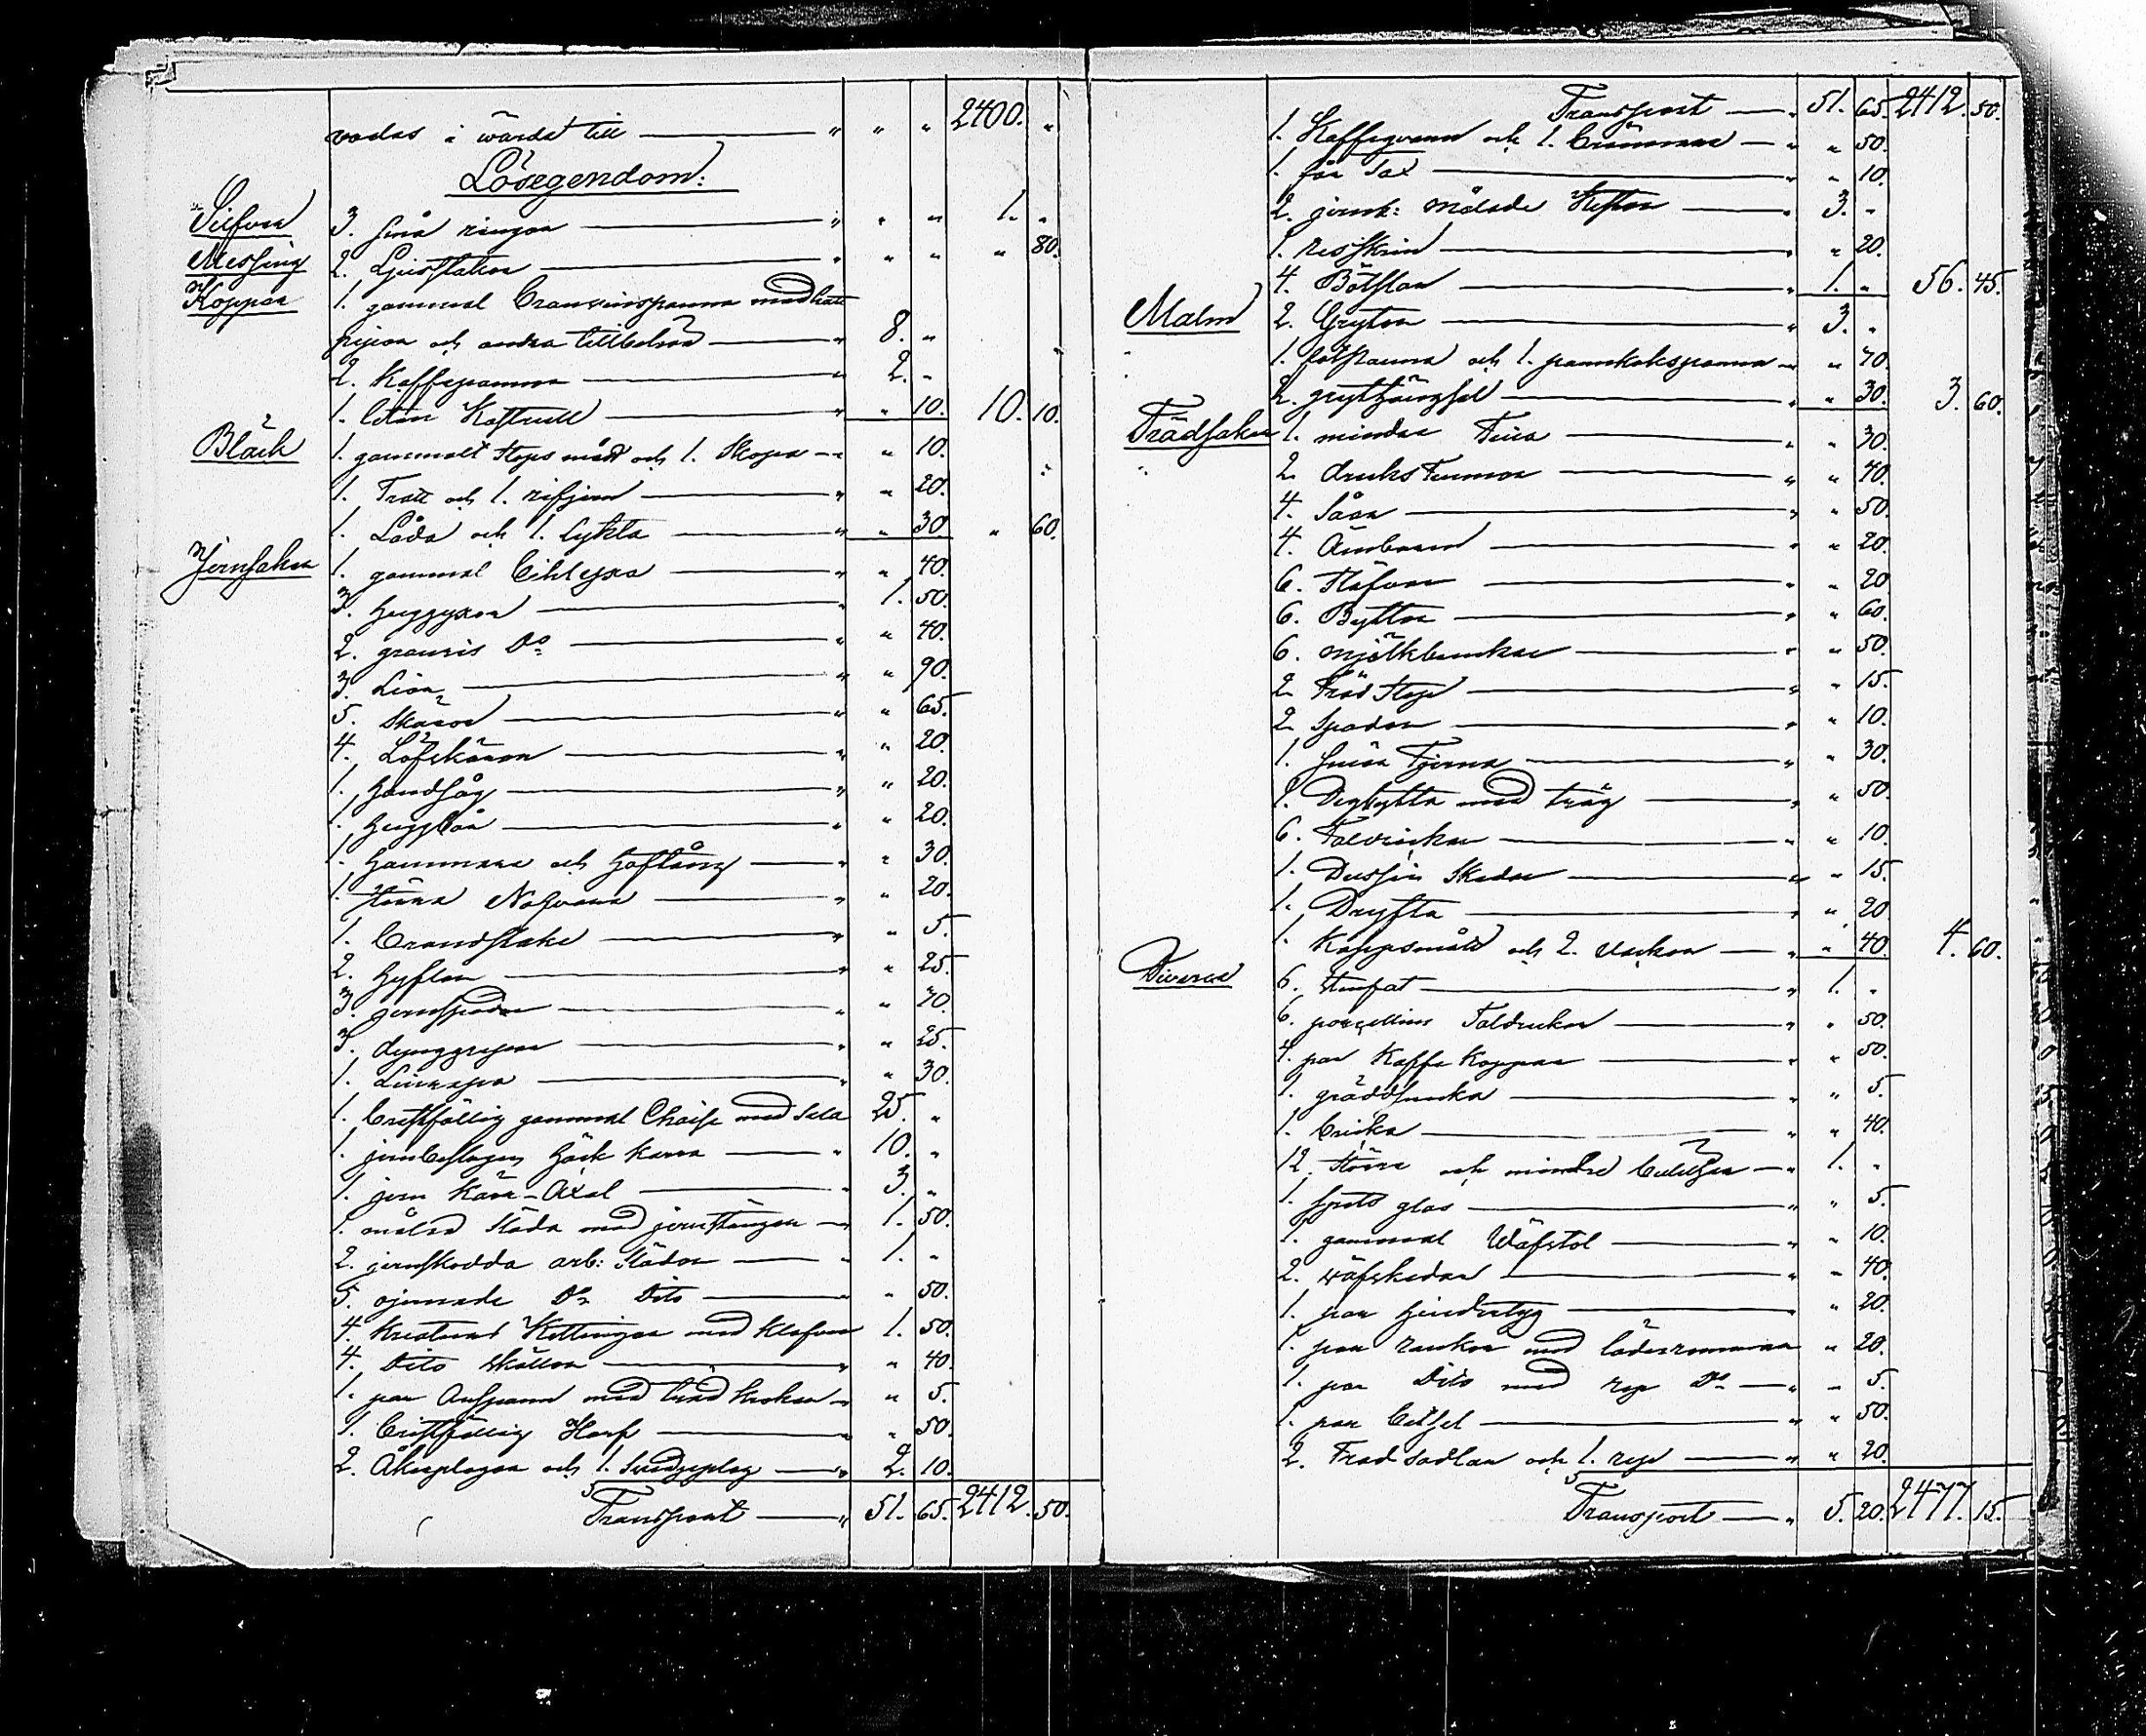 vodas i wärdet till — " " " 2400. "
Lösegendom:
Silfver 3. små ringar — " " " 1. "
Messing 2. Ljusstakar — " " " " 80.
Koppar 1. gammal Branvinspanna med hatt
pipior och andra tillbehör — " 8. "
2. Kaffepannor — " 2. "
1. liten Kastrull — " " 10. 10. 10.
Bläck 1. gammalt stops mått och 1. Skopa — " " 10.
1. Tratt och 1. rifjern — " " 20.
1. Låda och 1. lykta — " " 30. " 60.
Jernsaker 1. gammal Bilyxa — " " 40.
3. huggyxor — " 1. 50.
2. gramsis Do — " " 40.
3. Liar — " " 90.
5. Skäror — " " 65.
4. Löfskäror — " " 20.
1. handsåg — " " 20.
1. huggbår — " " 20.
1. hammare och hoftång — " " 30.
1. större Nafvare — " " 20.
1. brandstake — " " 5.
2. hyflar — " " 25.
3. jernspadar — " " 70.
3. dynggrepar — " " 25.
1. Linrepa — " " 30.
1. bristfällig gammal Chaise med sela 25. "
1. jernbeslagen häck kärra — " 10. "
1. jern Kärr-Axel — " 3. "
1. målad släda med jernstänger — " 1. 50.
2. jernskodda arb: slädor — " 1. "
5. ojernade Do Dito — " " 50.
4. kreaturs Kettingar med klafvar 1. 50.
4. Dito skällor — " " 40.
1. par Anspann med träd krokar — " " 5.
1. bristfällig Harf — " " 50.
2. Åkerplogar och 1. Svedjeplog — " 2. 10.
Transport — " 51. 65. 2412. 50.
Transport — " 51. 65. 2412. 50.
1. Kaffeqvarn och 1. brännare — " " 50.
1. får sax — " " 10.
2. jernb: målade Kistor — " 3. "
1. resskrin — " " 20.
4. Bötslar — " 1. " 56. 45.
Malm 2. Grytor — " 3. "
1. fotpanna och 1. pannkakspanna — " " 70.
2. grythängsel — " " 30. 3. 60.
Trädsaker 1. mindre Tina — " " 30.
2. drickstunnor — " " 40.
4. Såar — " " 50.
4. Ämbaren — " " 20.
6. Stäfvor — " " 20.
6. Byttor — " " 60.
6. mjölkbunkar — " " 50.
2. Träd stop — " " 15.
2. Spadar — " " 10.
1. smör Tjerna — " " 30.
1. Degbytta med tråg — " " 50.
6. Talrickar — " " 10.
1. Dussin Skedar — " " 15.
1. Dryfta — " " 20.
1. Kappsmått och 2. vackor — " " 40. 4. 60.
Diverse 6. stenfat — " 1. "
6. porcellins Taldrickar — " " 50.
4. par Kaffe Koppar — " " 50.
1. gräddsnecka — " " 5.
1. bricka — " " 40.
12. större och mindre buteljer — " 1. "
1. spets glas — " " 5.
1. gammal Wäfstol — " " 10.
2. wäfskedar — " " 40.
1. par hindertyg — " " 20.
1. par rankor med läderremmar " 20.
1. par Dito med rep Do — " " 5.
1. par betsel — " " 50.
2. Trad sadlar och 1. rep — " " 20.
Transport — " 5. 20. 2477. 15.